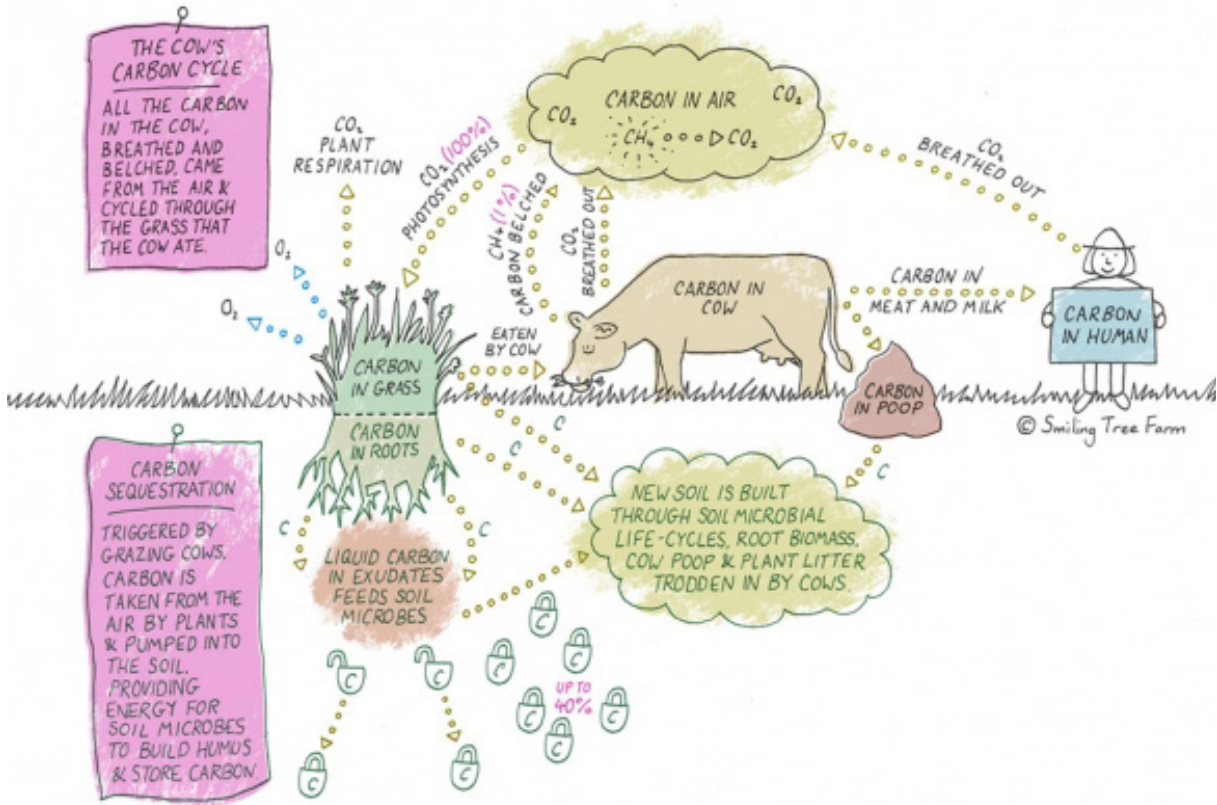 THE COW'S
CARBON CYCLE
ALL THE CARBON
IN THE COW,
BREATHED AND
BELCHED, CAME
FROM THE AIR &
CYCLED THROUGH
THE GRASS THAT
THE COW ATE.
CO₂
PLANT
RESPIRATION
O₂
O₂
CO₂ (100%)
PHOTOSYNTHESIS
CH₄ (1%)
CARBON BELCHED
CO₂
BREATHED OUT
CARBON IN AIR
CO₂
CO₂
CH₄
CO₂
CO₂
BREATHED OUT
CARBON IN
COW
CARBON IN
MEAT AND MILK
CARBON
IN HUMAN
EATEN
BY COW
CARBON
IN GRASS
CARBON
IN ROOTS
CARBON
IN POOP
© Smiling Tree Farm
C
C
C
C
C
CARBON
SEQUESTRATION
TRIGGERED BY
GRAZING COWS.
CARBON IS
TAKEN FROM THE
AIR BY PLANTS
& PUMPED INTO
THE SOIL.
PROVIDING
ENERGY FOR
SOIL MICROBES
TO BUILD HUMUS
& STORE CARBON
LIQUID CARBON
IN EXUDATES
FEEDS SOIL
MICROBES
NEW SOIL IS BUILT
THROUGH SOIL MICROBIAL
LIFE-CYCLES, ROOT BIOMASS,
COW POOP & PLANT LITTER
TRODDEN IN BY COWS.
C
C
C
C
C
UP TO
40%
C
C
C
C
C